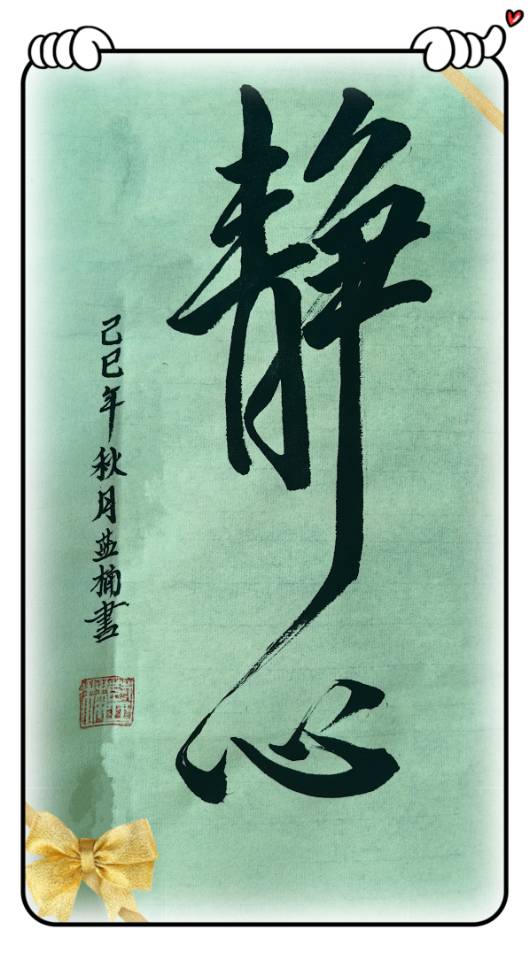 静心
己巳年秋月益楠書